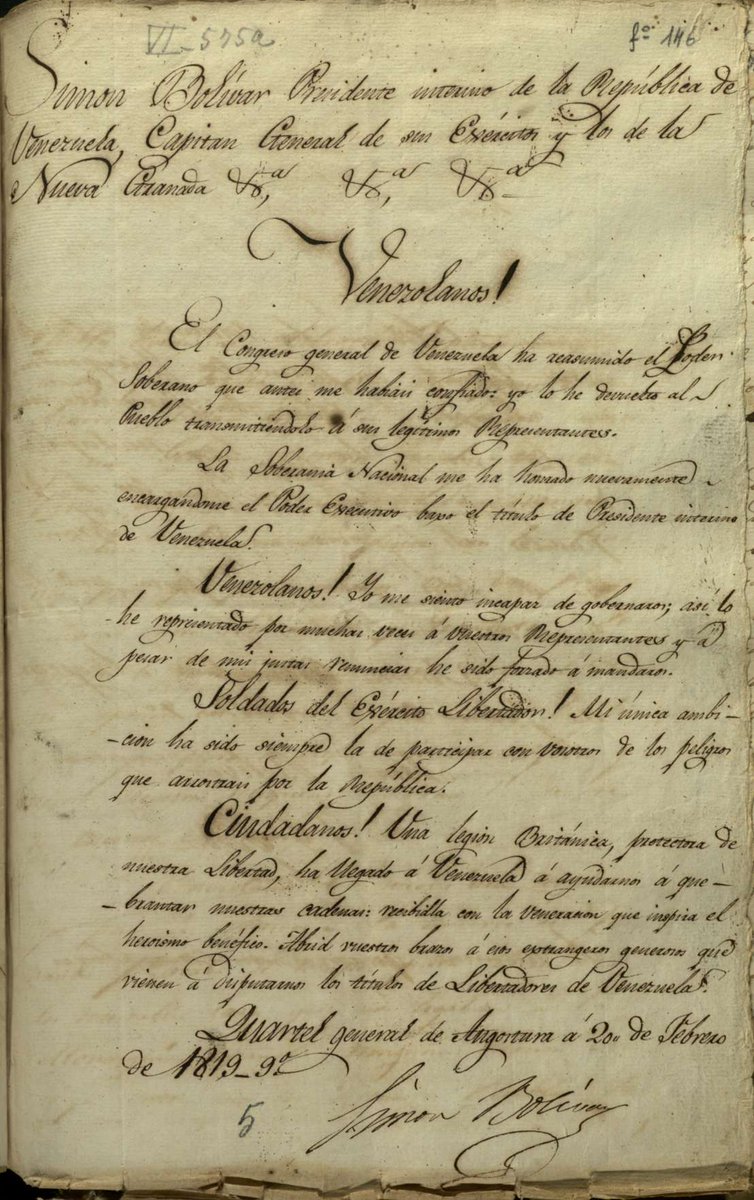 VI-575a
fº 146
Simon Bolívar Presidente interino de la República de
Venezuela, Capitan General de sus Exércitos y los de la
Nueva Granada &,ª &,ª &ª
Venezolanos!
El Congreso general de Venezuela ha reasumido el Poder
Soberano que antes me habiais confiado: yo lo he devuelto al
Pueblo transmitiéndolo á sus legítimos Representantes.
La Soberania Nacional me ha honrado nuevamente
encargandome el Poder Executivo baxo el título de Presidente interino
de Venezuela.
Venezolanos! Yo me siento incapaz de gobernaros; así lo
-he representado por muchas veces á vuestros Representantes y á
pesar de mis justas renuncias he sido forzado á mandaros.
Soldados del Exército Libertador! Mi única ambi-
-cion ha sido siempre la de participar con vosotros de los peligros
que arrostrais por la República.
Ciudadanos! Una legion Británica, protectora de
nuestra Libertad, ha llegado á Venezuela á ayudarnos á que-
-brantar nuestras cadenas: recibidla con la veneracion que inspira el
heroismo benéfico. Abrid vuestros brazos á esos extrangeros generosos que
vienen á disputarnos los títulos de Libertadores de Venezuela.
Quartel general de Angostura á 20 de Febrero
de 1819_9º
Simon Bolívar
5